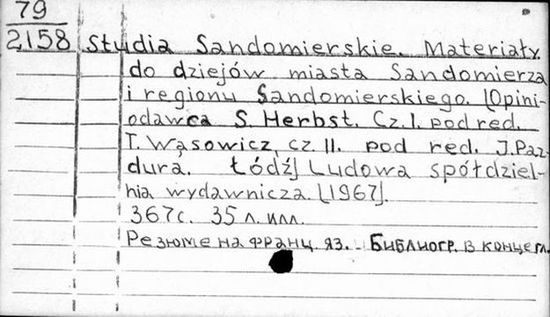 79
2158 Studia Sandomierskie. Materiały
do dziejów miasta Sandomierza
i regionu Sandomierskiego. [Opini-
odawca S. Herbst. Cz. I. pod red.
T. Wąsowicz, cz. II. pod red. J. Paz-
dura. Łódź] Ludowa spółdziel-
nia wydawnicza. [1967].
367с. 35 л. илл.
Резюме на франц. яз. Библиогр. в конце гл.